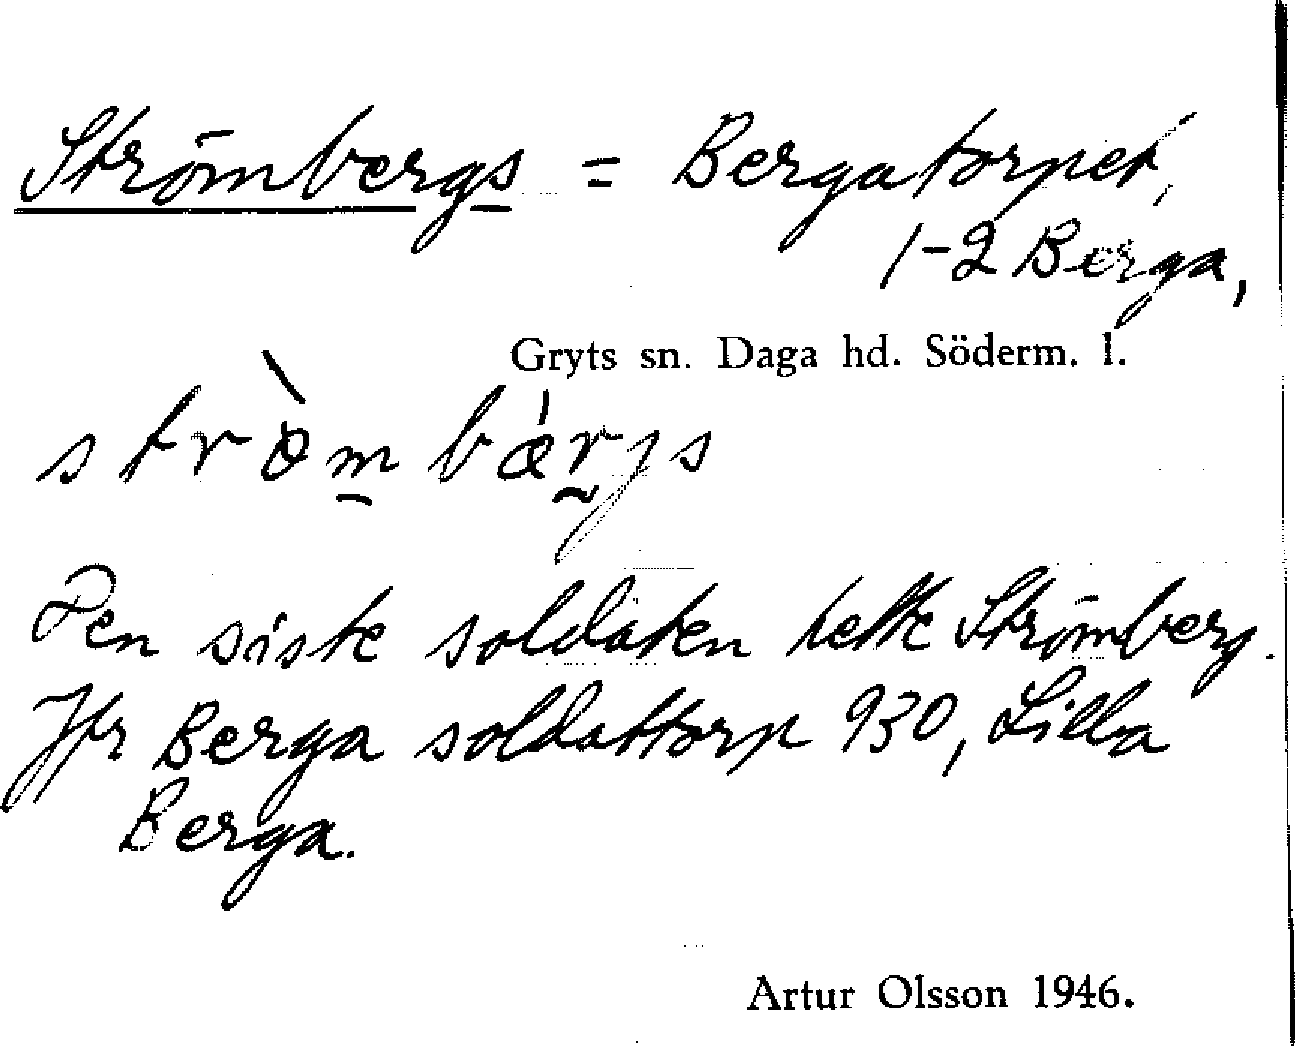 Strömbergs = Bergatorpet,
1-2 Berga,
Gryts sn. Daga hd. Söderm. l.
strò̀m bǽrjs
Den siste soldaten hette Strömberg.
Jfr Berga soldattorp 930, Lilla
Berga.
Artur Olsson 1946.